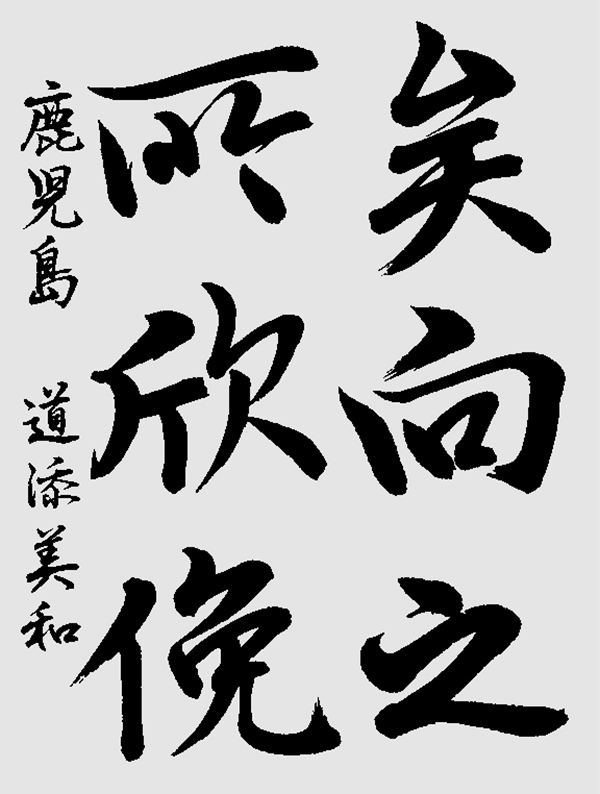 矣向之
所欣俛
鹿児島 道添美和